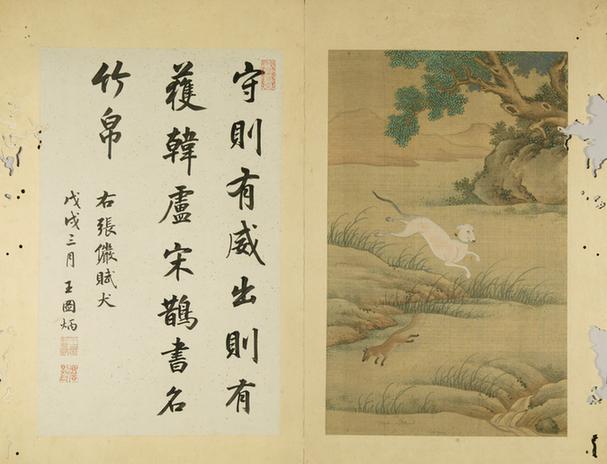 守則有威出則有
獲韓盧宋鵲書名
竹帛
右張儼賦犬
戊戌三月王圖炳